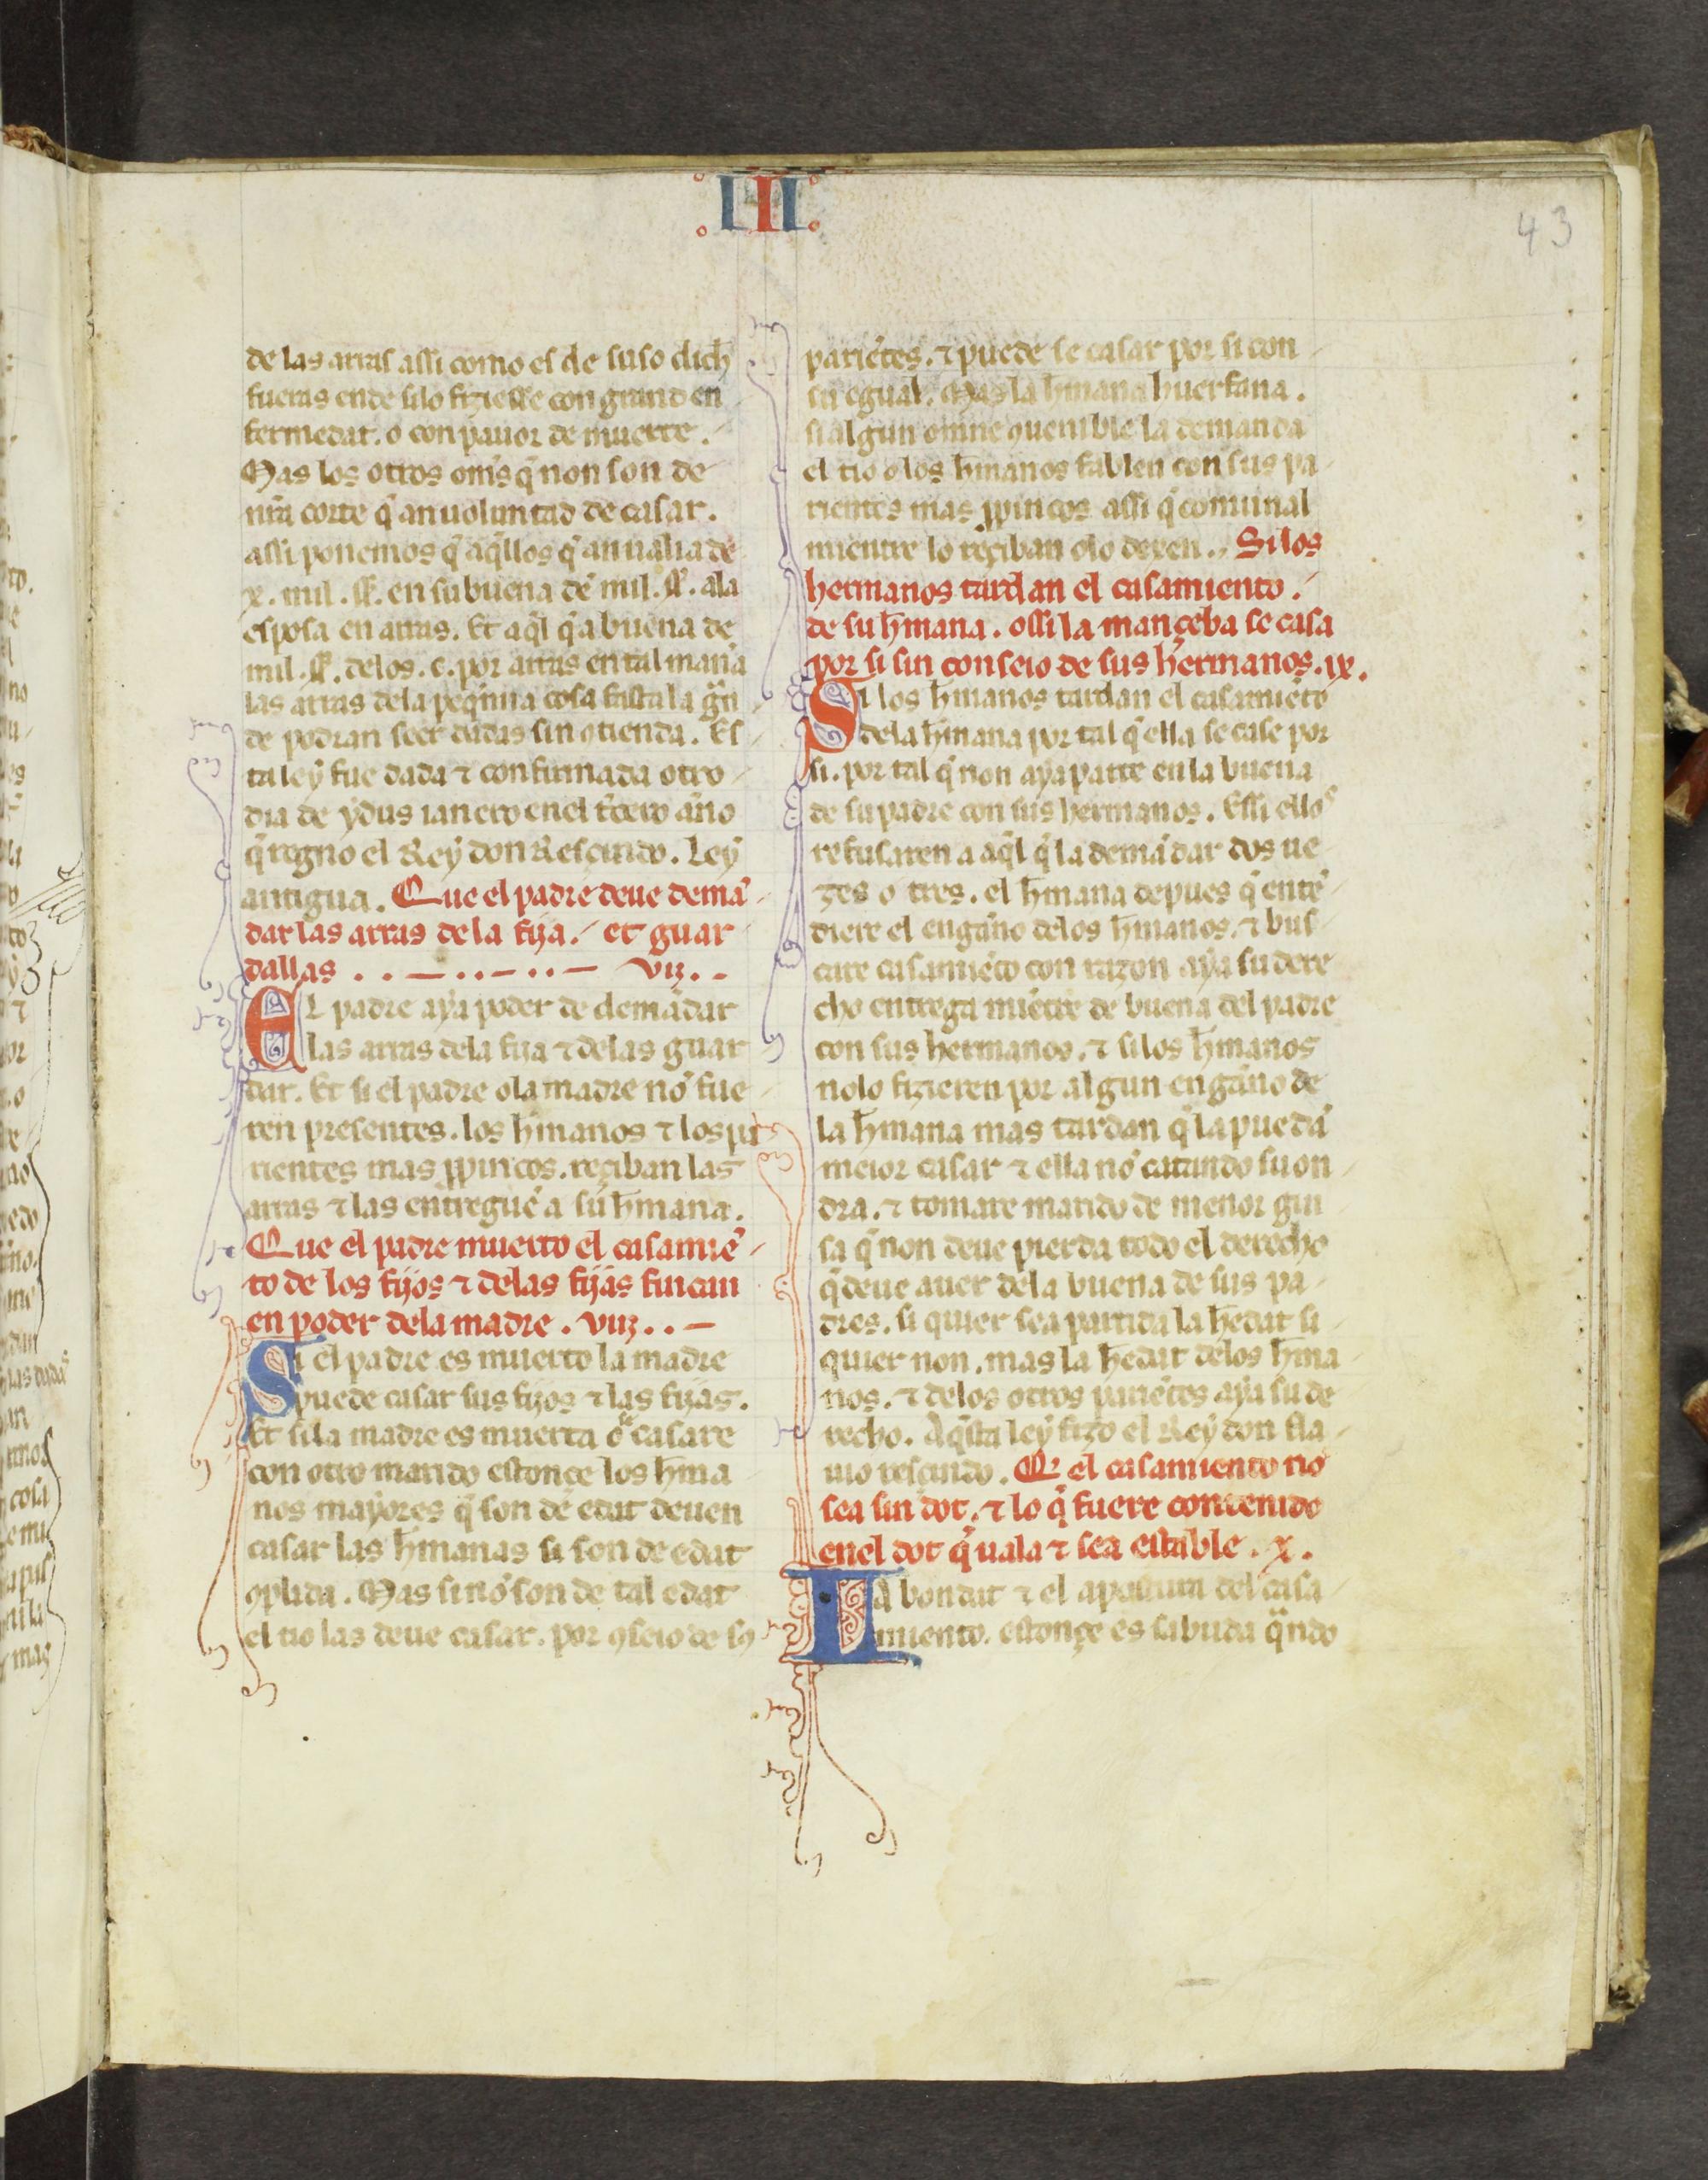 III
43
de las arras assi como es de suso dich̄
fueras ende silo fiziesse con grand en
fermedat. o con pauor de muerte.
Mas los otros om̄s q̄ non son de
nr̄a corte q̄ an uoluntad de casar.
assi ponemos q̄ aq̄llos q̄ an ualia de
x. mil. ss. en su buena dē mil. ss. ala
esposa en arras. Et aq̄l q̄ a buena de
mil. ss. delos. c. por arras en tal man̄a
las arras dela peq̄nna cosa fasta la gn̄
de podran seer dadas sin ꝯtienda. Es
ta ley fue dada ⁊ confirmada otro
dia de ydus ianero enel t̄cero anno
q̄ regno el Rey don Resçindo. Ley
antigua. Que el padre deue demā
dar las arras de la fija. et guar
dallas .. — .. — .. — vij..
El padre aya poder de demādar
las arras dela fija ⁊ delas guar
dar. Et si el padre ola madre nō fue
ren presentes. los hm̄anos ⁊ los pa
rientes mas ꝓpincos. reçiban las
arras ⁊ las entreguē a su hm̄ana.
Que el padre muerto el casamiē
to de los fijos ⁊ delas fijas fincan
en poder dela madre. viij..—
Si el padre es muerto la madre
puede casar sus fijos ⁊ las fijas.
Et sila madre es muerta o se casare
con otro marido estonçe los hm̄a
nos mayores q̄ son de edat deuen
casar las hm̄anas si son de edat
ꝯplida. Mas si nō son de tal edat
el tio las deue casar. por ꝯseio de sꝯ
pariētes. ⁊ puede se casar por si con
su egual. Mas la hm̄ana huerfana.
si algun omne ꝯuenible la demanda
el tio o los hm̄anos fablen con sus pa
rientes mas ꝓpincos assi q̄ comunal
mientre lo reçiban olo dexen. Si los
hermanos tardan el casamiento.
de su hm̄ana. ossi la mançeba se casa
por si sin conseio de sus hermanos. ix.
Si los hm̄anos tardan el casamiēto
dela hm̄ana por tal q̄ ella se case por
si. por tal q̄ non aya parte en la buena
de su padre con sus hermanos. Essi ellos
refusaren a aq̄l q̄ la demādar dos ue
zes o tres. el hm̄ana depues q̄ entē
diere el enganno delos hm̄anos. ⁊ bus
care casamiēto con razon aya su dere
cho entrega miētre de buena del padre
con sus hermanos. ⁊ silos hm̄anos
nolo fizieren por algun enganno de
la hm̄ana mas tardan q̄ la puedā
meior casar ⁊ ella nō catando su on
dra. ⁊ tomare marido de menor gui
sa q̄ non deue pierda todo el derecho
q̄ deue auer dela buena de sus pa
dres. si quier sea partida la h̄edat si
quier non. mas la h̄edat delos hm̄a
nos. ⁊ delos otros pariētes aya su de
recho. Aq̄sta ley fizo el Rey don fla
uio resçindo. Q̄ el casamiento nō
sea sin dot. ⁊ lo q̄ fuere contenido
enel dot q̄ uala ⁊ sea estable. x.
La bondat ⁊ el apostura del casa
miento. estonçe es sabuda q̄ndo